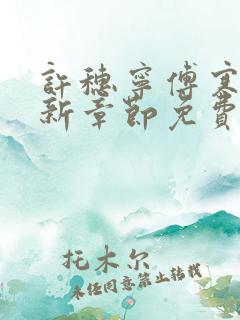 許穗寧傅寒
新章節免費
托木尔
未经同意禁止转载